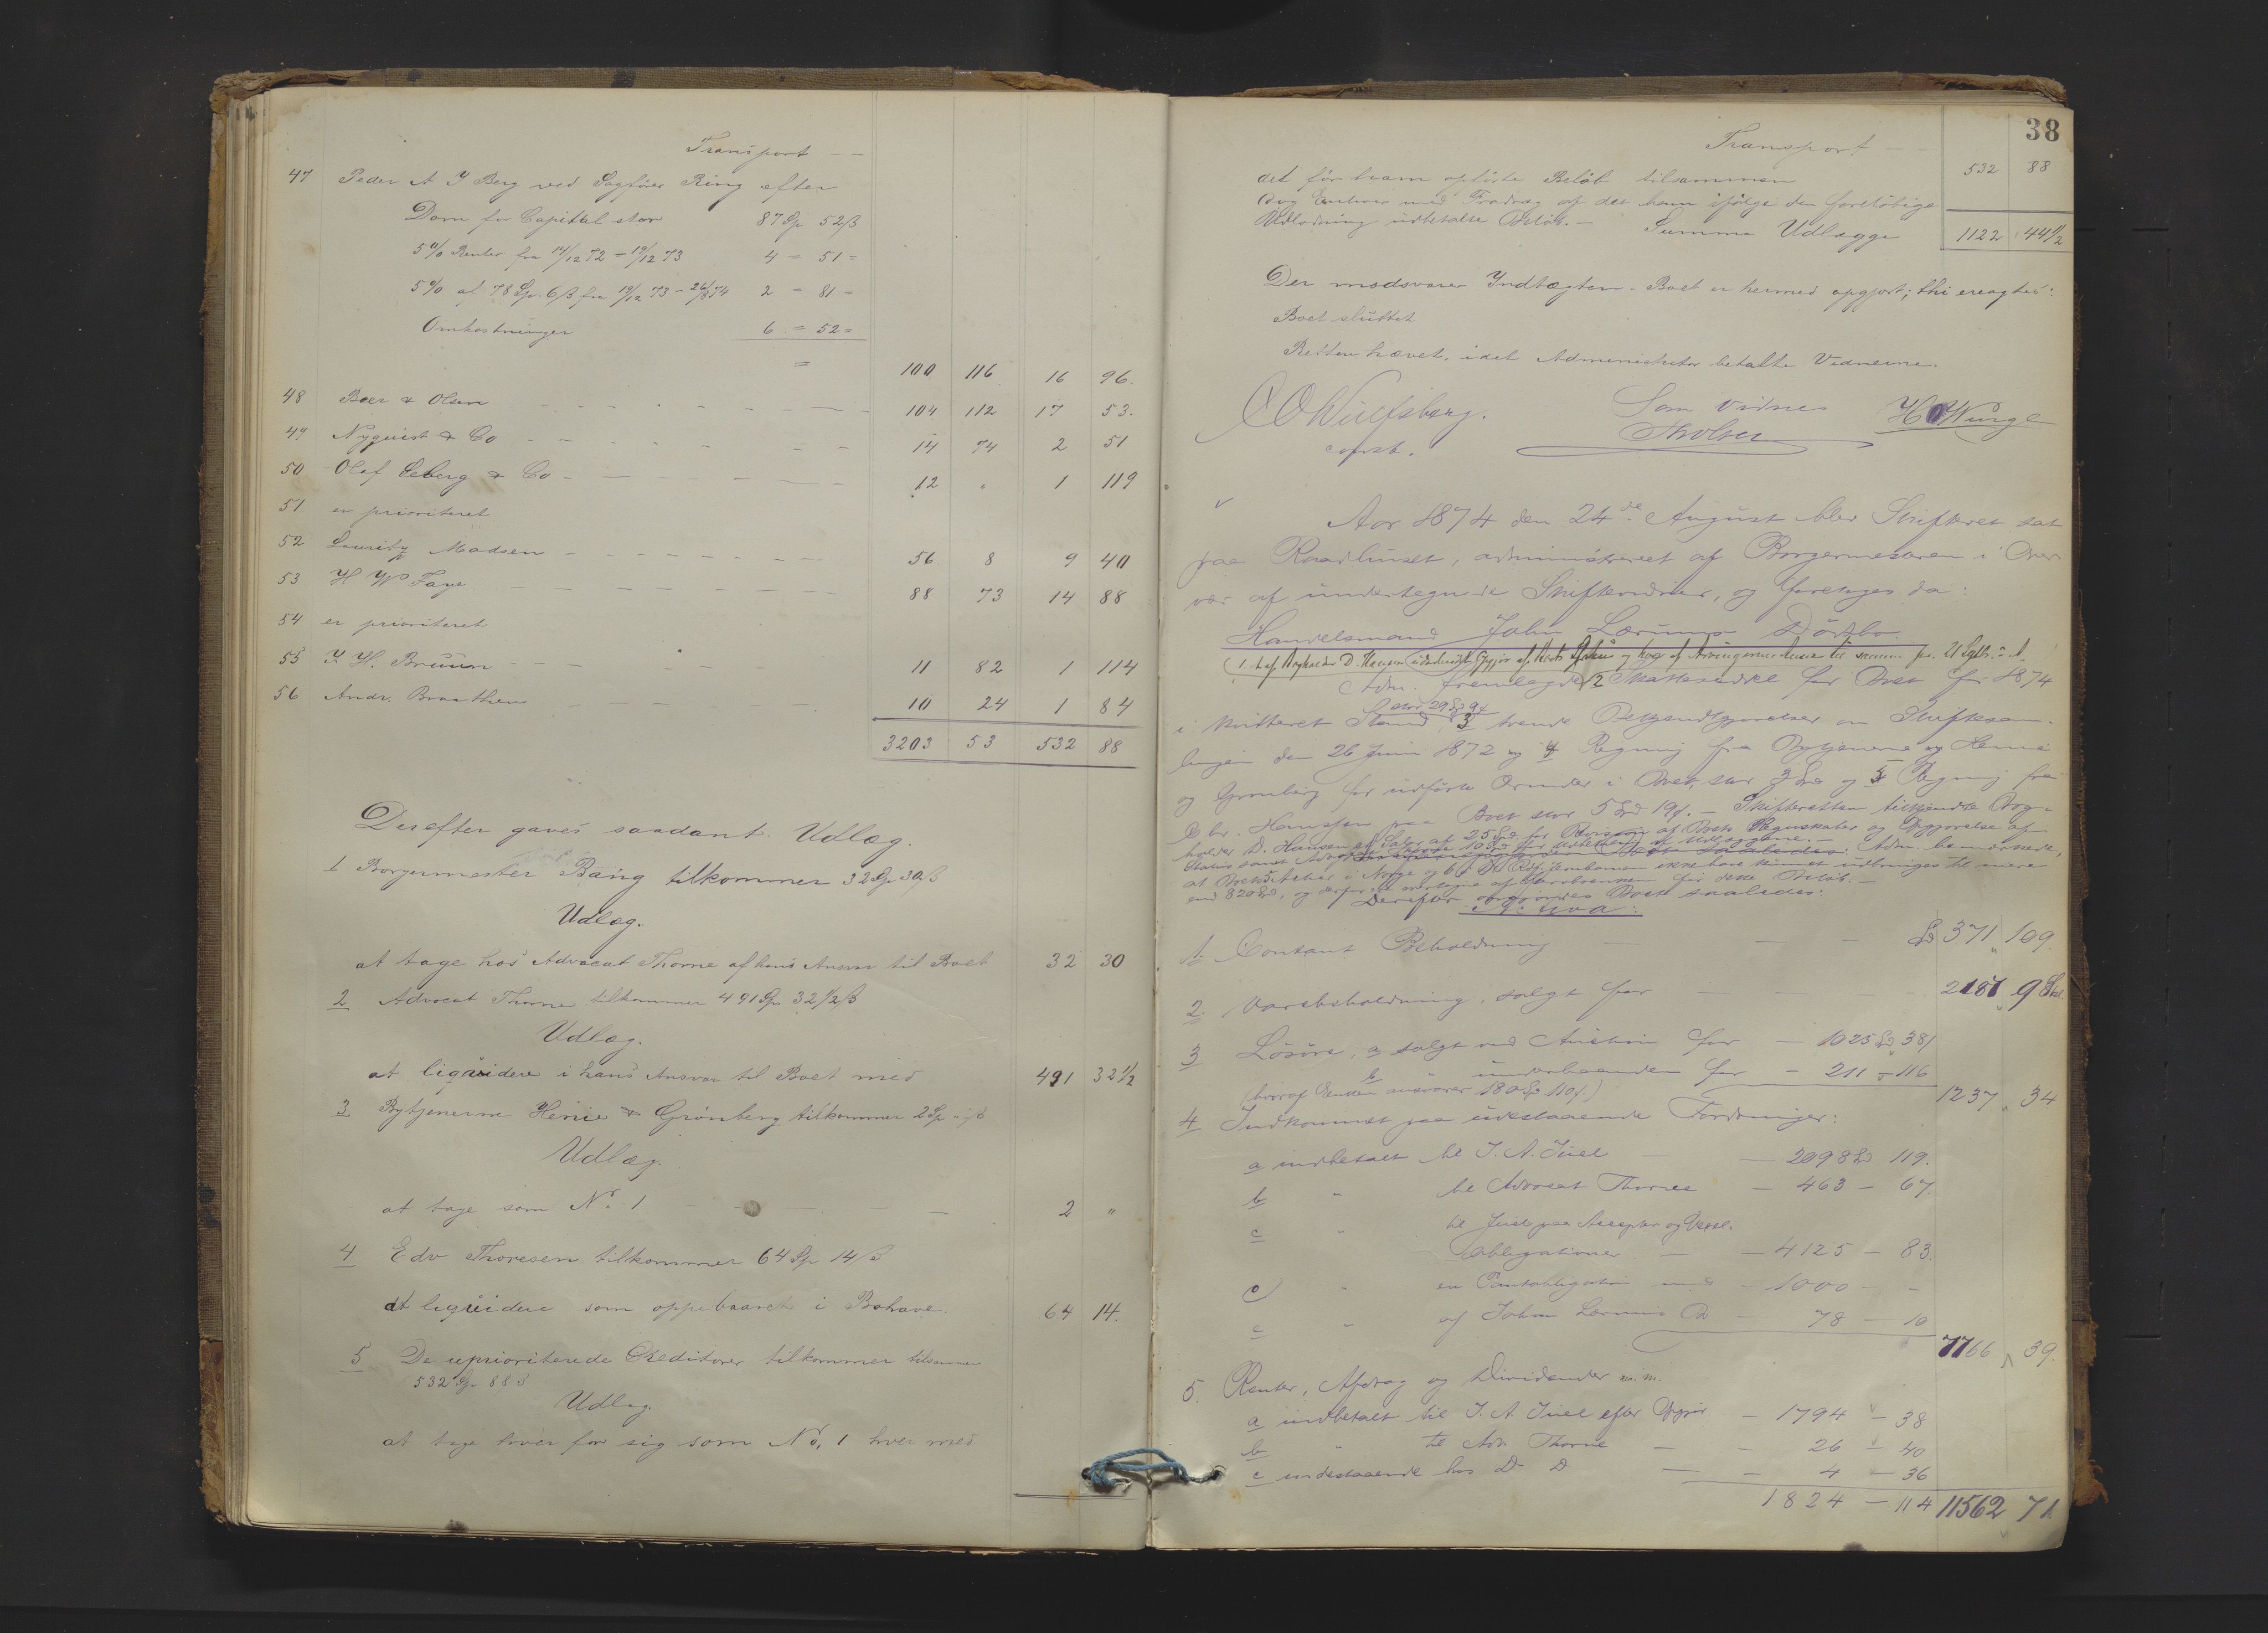 Transport
47 Peder A J Berg ved Sagfører Ring efter
Dom for Capital stor 87 Sp 52 ß
5% Renter fra 14/12 72 - 19/12 73 4 = 51 =
5% af 78 Sp. 6 ß fra 19/12 73 - 26/8 74 2 = 81 =
Omkostninger 6 = 52 =
= 100 116 16 96.
48 Beer & Olsen 104 112 17 53.
49 Nyquist & Co 14 74 2 51
50 Olaf Seberg & Co 12 " 1 119
51 er prioriteret
52 Lauritz Madsen 56 8 9 40
53 H W Faye 88 73 14 88
54 er prioriteret
55 J H. Bruun 11 82 1 114
56 Andr. Braathen 10 24 1 84
3203 53 532 88
Derefter gaves saadant Udlæg.
1 Borgermester Bang tilkommer 32 Sp 30 ß
Udlæg.
at tage hos Advocat Thorne af hans Ansvar til Boet 32 30
2 Advocat Thorne tilkommer 491 Sp 32 1/2 ß
Udlæg.
at liqvidere i hans Ansvar til Boet med 491 32 1/2
3 Bytjenerne Henie & Grönberg tilkommer 2 Sp " ß
Udlæg.
at tage som No. 1 2 "
4 Edv Thoresen tilkommer 64 Sp 14 ß
at liqvidere som oppebaaret i Behave. 64 14.
5 De uprioriterede Creditorer tilkommer tilsammen
532 Sp 88 ß
Udlæg.
at tage hver for sig som No. 1 hver med
38
Transport 532 88
det for ham opførte Beløb tilsammen
dog Enhver med Fradrag af det ham ifølge den foreløbige
Udlodning udbetalte Beløb. - Summa Udlægge 1122 44 1/2
Der modsvarer Indtægten. Boet er hermed opgjort; thi eragtes:
Boet sluttet
Retten hævet, idet Administrator betalte Vidnerne.
C O Wulfsberg. Som Vidner H O Winge
const.
Aar 1874 den 24de August blev Skifteret sat
paa Raadhuset, administreret af Borgermesteren i Over-
vær af undertegnede Skiftevidner, og foretoges da:
Handelsmand John Lærums Dödsbo
Adm. fremlagde 2 Skattesedel for Boet for 1874
i kvitteret Stand, 3 trende Bekjendtgjørelser om Skiftesam-
lingen den 26 Juni 1872 og 4 Regning fra Bytjenerne Henie
og Gronberg for udførte Ærinder i Boet, stor 3 Spd og 5 Regning fra
Chr. Hansen paa Boet stor 5 Spd 19 ß. - Skifteretten tilkjendte Bog-
holder D. Hansen et Salær af 25 Spd for Revision af Boets Regnskaber og Opgjørelse af
at Boets Activer i Norge
end 820 Spd,
Derefter opgjordes Boet saaledes:
Activa:
1. Contant Beholdning Spd 371 109.
2. Varebeholdning, solgt for 2187 9 Skl.
3 Løsøre, a solgt ved Auction for 1025 Spd 38 ß
b " underhaanden for 211 - 116
(hvoraf Enken ansvarer 180 Spd 110 ß.) 1237 34
4 Indkommet paa udestaaende Fordringer:
a indbetalt til J. A. Juel 2098 Spd 119.
b " til Advocat Thorne 463 - 67.
c " til Juel paa Accepter og Vexel-
obligationer 4125 - 83.
d " en Pantobligation med 1000 - -
e " af John Lærums Bo 78 - 10
7766 39.
5. Renter, Afdrag og Dividender m.m.
a indbetalt til J. A. Juel efter Opgjør 1794 - 38
b " til Adv. Thorne 26 - 40
c indestaaende hos D D 4 - 36
1824 - 114 11562 71